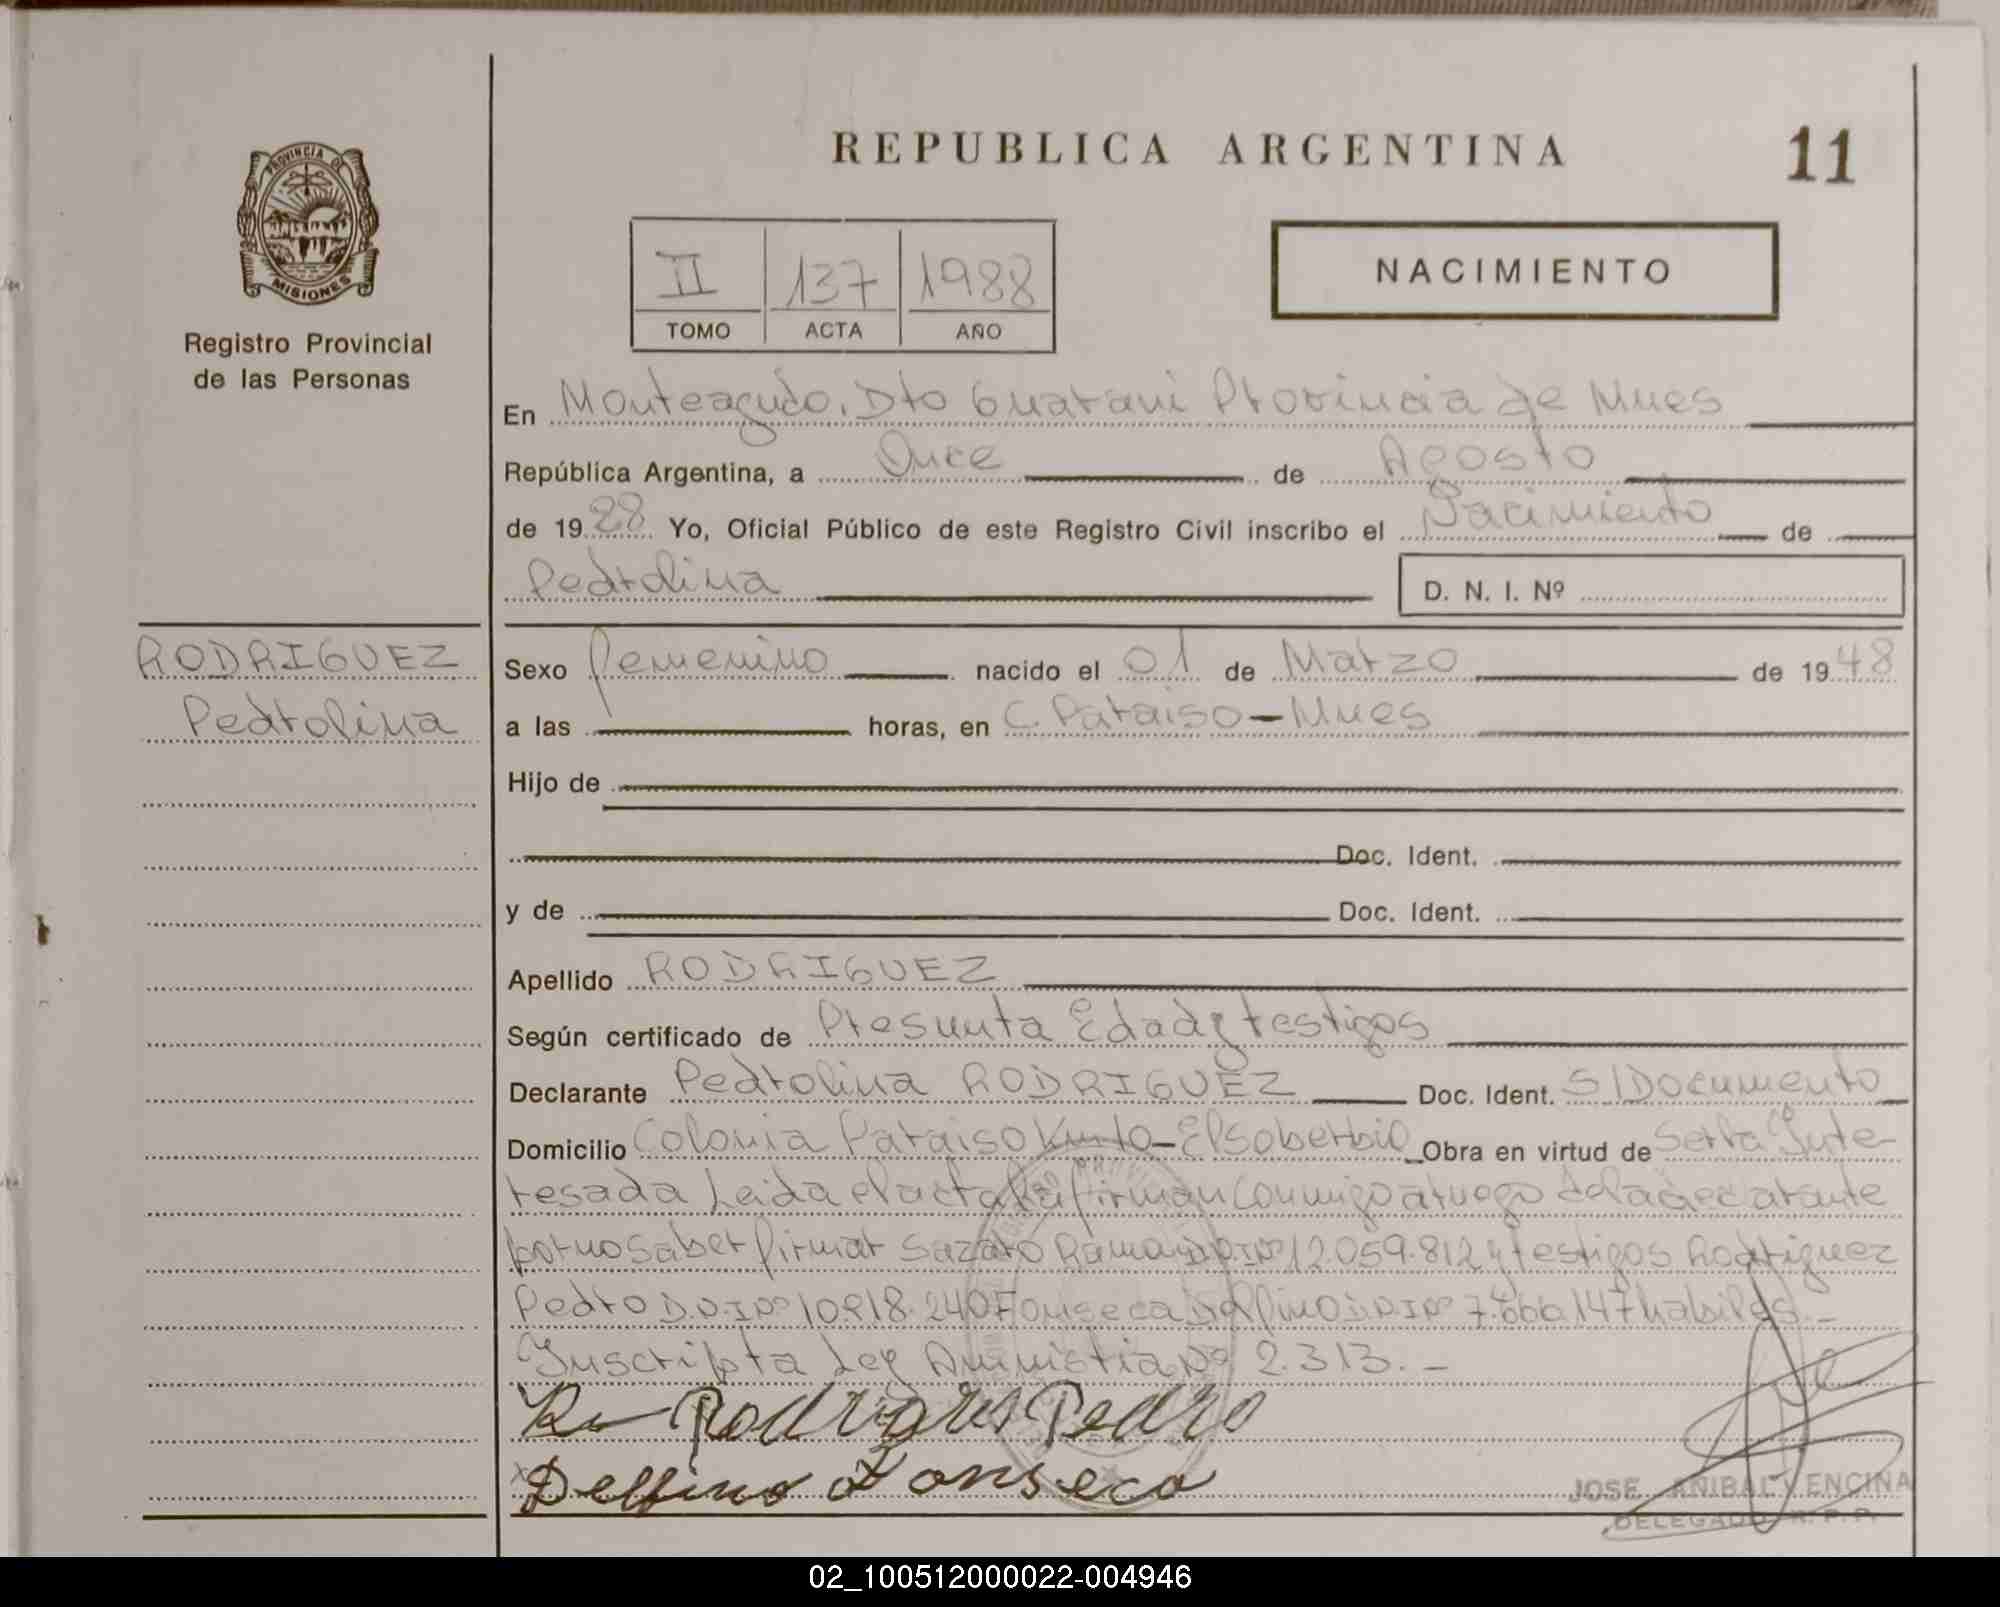 REPUBLICA ARGENTINA
11
PROVINCIA DE
MISIONES
Registro Provincial
de las Personas
II 137 1988
TOMO ACTA AÑO
NACIMIENTO
En Monteagudo. Dto Guarani Provincia de Mnes
República Argentina, a Once de Agosto
de 1988 Yo, Oficial Público de este Registro Civil inscribo el Nacimiento de
Pedrolina
D. N. I. Nº
RODRIGUEZ
Pedrolina
Sexo femenino nacido el 01 de Marzo de 1948
a las horas, en C. Paraiso - Mnes
Hijo de
Doc. Ident.
y de Doc. Ident.
Apellido RODRIGUEZ
Según certificado de Presunta Edad y testigos
Declarante Pedrolina RODRIGUEZ Doc. Ident. S/Documento
Domicilio Colonia Paraiso - El Soberbio Obra en virtud de Ser la Inte
resada Leida el acta la firman conmigo a ruego de la declarante
por no saber firmar Sazaro Ramon D.N.I Nº 12.059.812 y testigos Rodriguez
Pedro D.N.I Nº 10.918.240 Fonseca Delfino D.N.I Nº 7.666.147 habiles. -
Inscripta Ley Amnistia Nº 2.313. -
Rodrigres Pedro
x Delfino Fonseca
JOSE ANIBAL VENCINA
DELEGADO R. P. P.
02_100512000022-004946